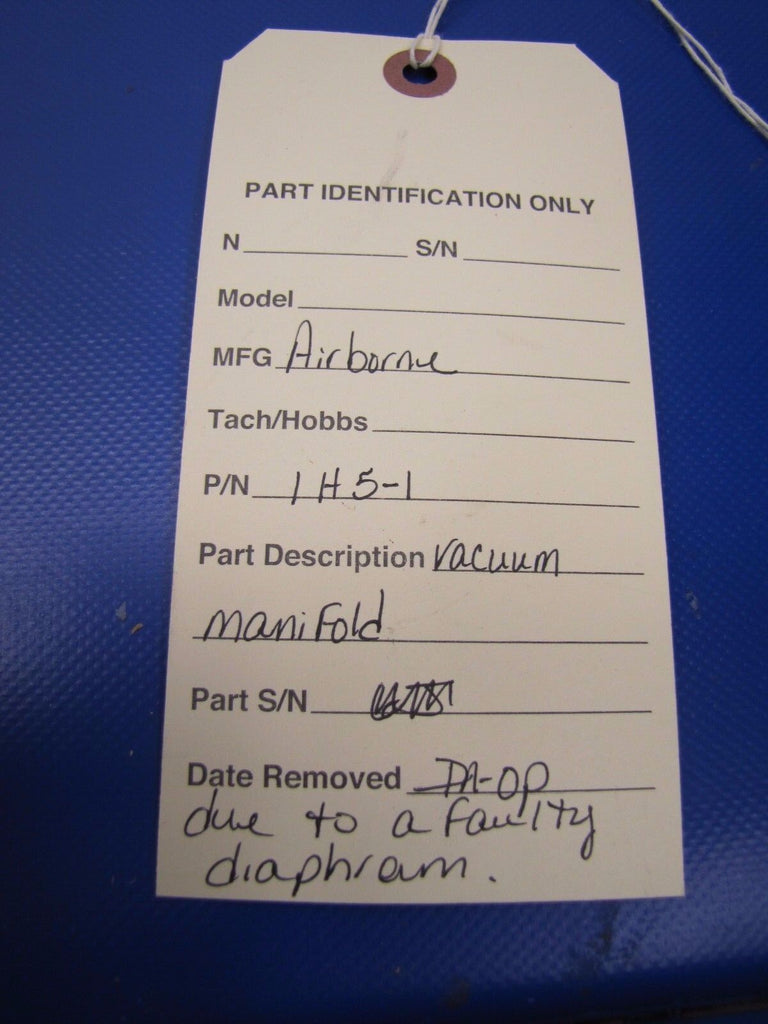 PART IDENTIFICATION ONLY
N S/N
Model
MFG Airborne
Tach/Hobbs
P/N 1H5-1
Part Description vacuum
manifold
Part S/N
Date Removed IN-OP
due to a faulty
diaphram.